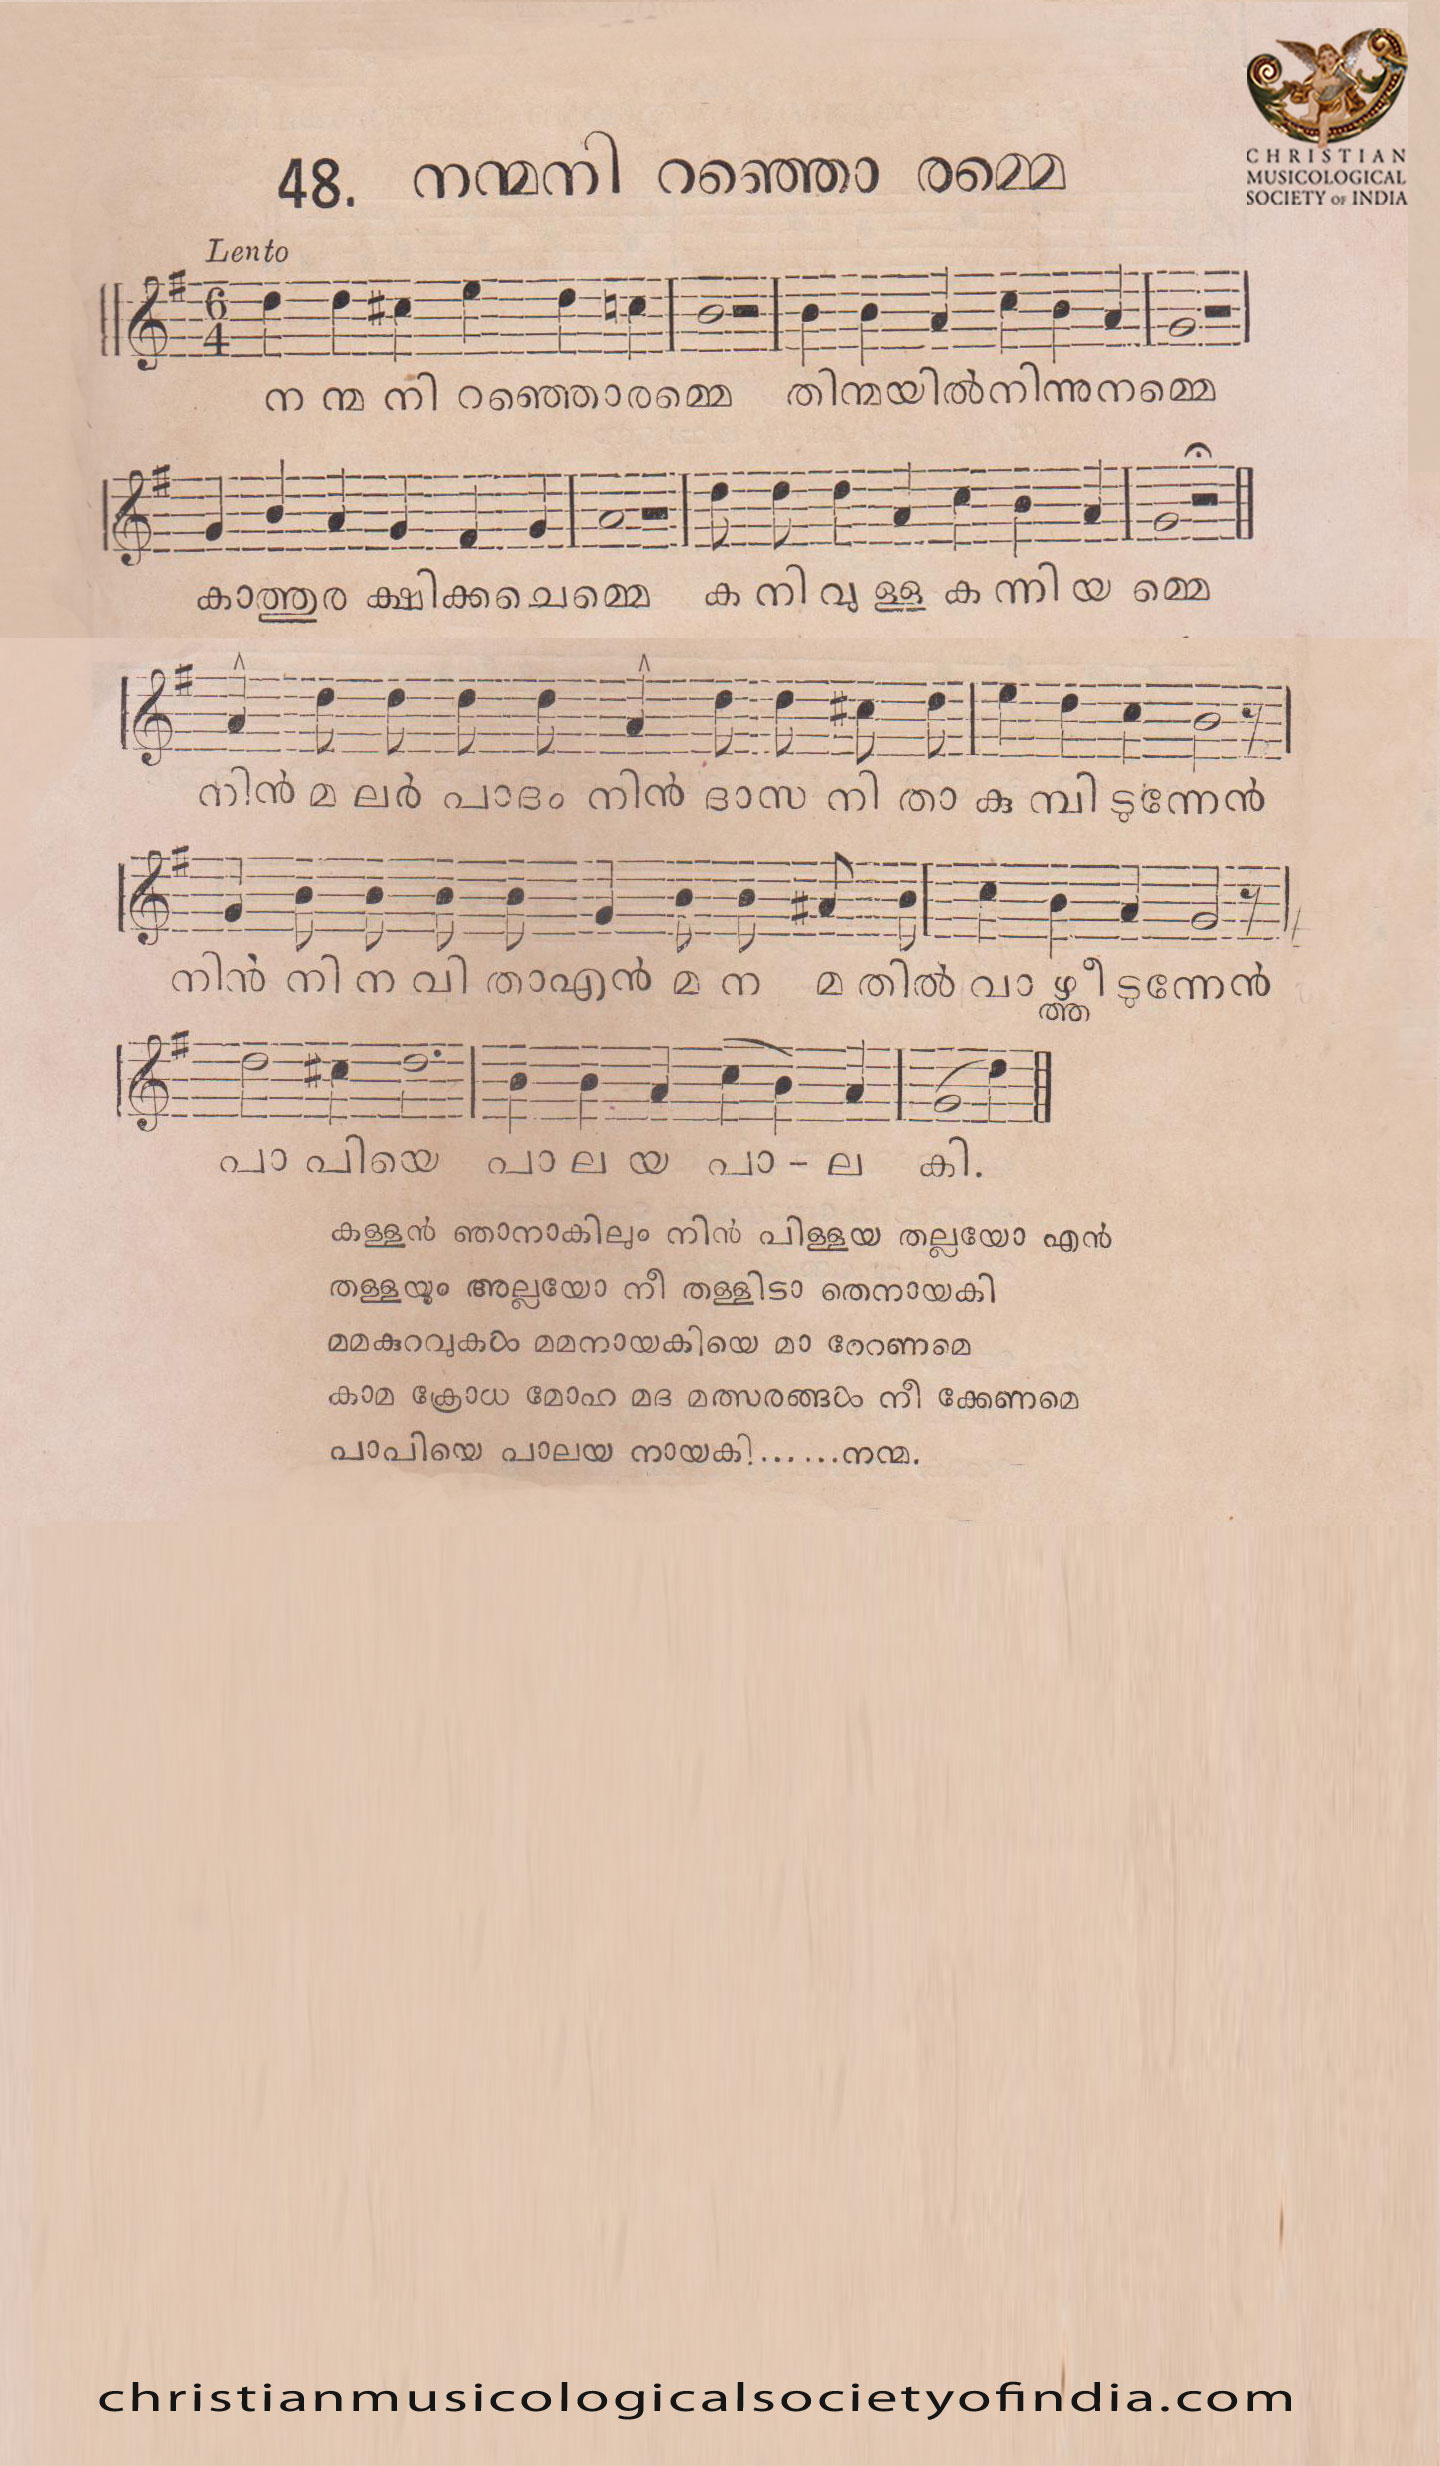 CHRISTIAN
MUSICOLOGICAL
SOCIETY OF INDIA
48. നന്മനി റഞ്ഞൊ രമ്മെ
Lento
6
4
ന ന്മ നി റഞ്ഞൊരമ്മെ തിന്മയിൽനിന്നുനമ്മെ
കാത്തുര ക്ഷിക്കചെമ്മെ ക നി വു ള്ള ക ന്നി യ മ്മെ
നിൻ മ ലർ പാദം നിൻ ദാസ നി താ കു മ്പി ടുന്നേൻ
നിൻ നി ന വി താഎൻ മ ന മ തിൽ വാ ഴ്ത്തീ ടുന്നേൻ
പാ പിയെ പാ ല യ പാ – ല കി.
കള്ളൻ ഞാനാകിലും നിൻ പിള്ളയ തല്ലയോ എൻ
തള്ളയും അല്ലയോ നീ തള്ളിടാ തെനായകി
മമകുറവുകൾ മമനായകിയെ മാ റേറണമെ
കാമ ക്രോധ മോഹ മദ മത്സരങ്ങൾ നീ ക്കേണമെ
പാപിയെ പാലയ നായകി!......നന്മ.
christianmusicologicalsocietyofindia.com